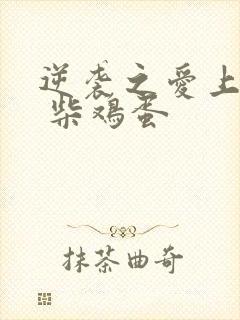 逆袭之爱上
柴鸡蛋
抹茶曲奇